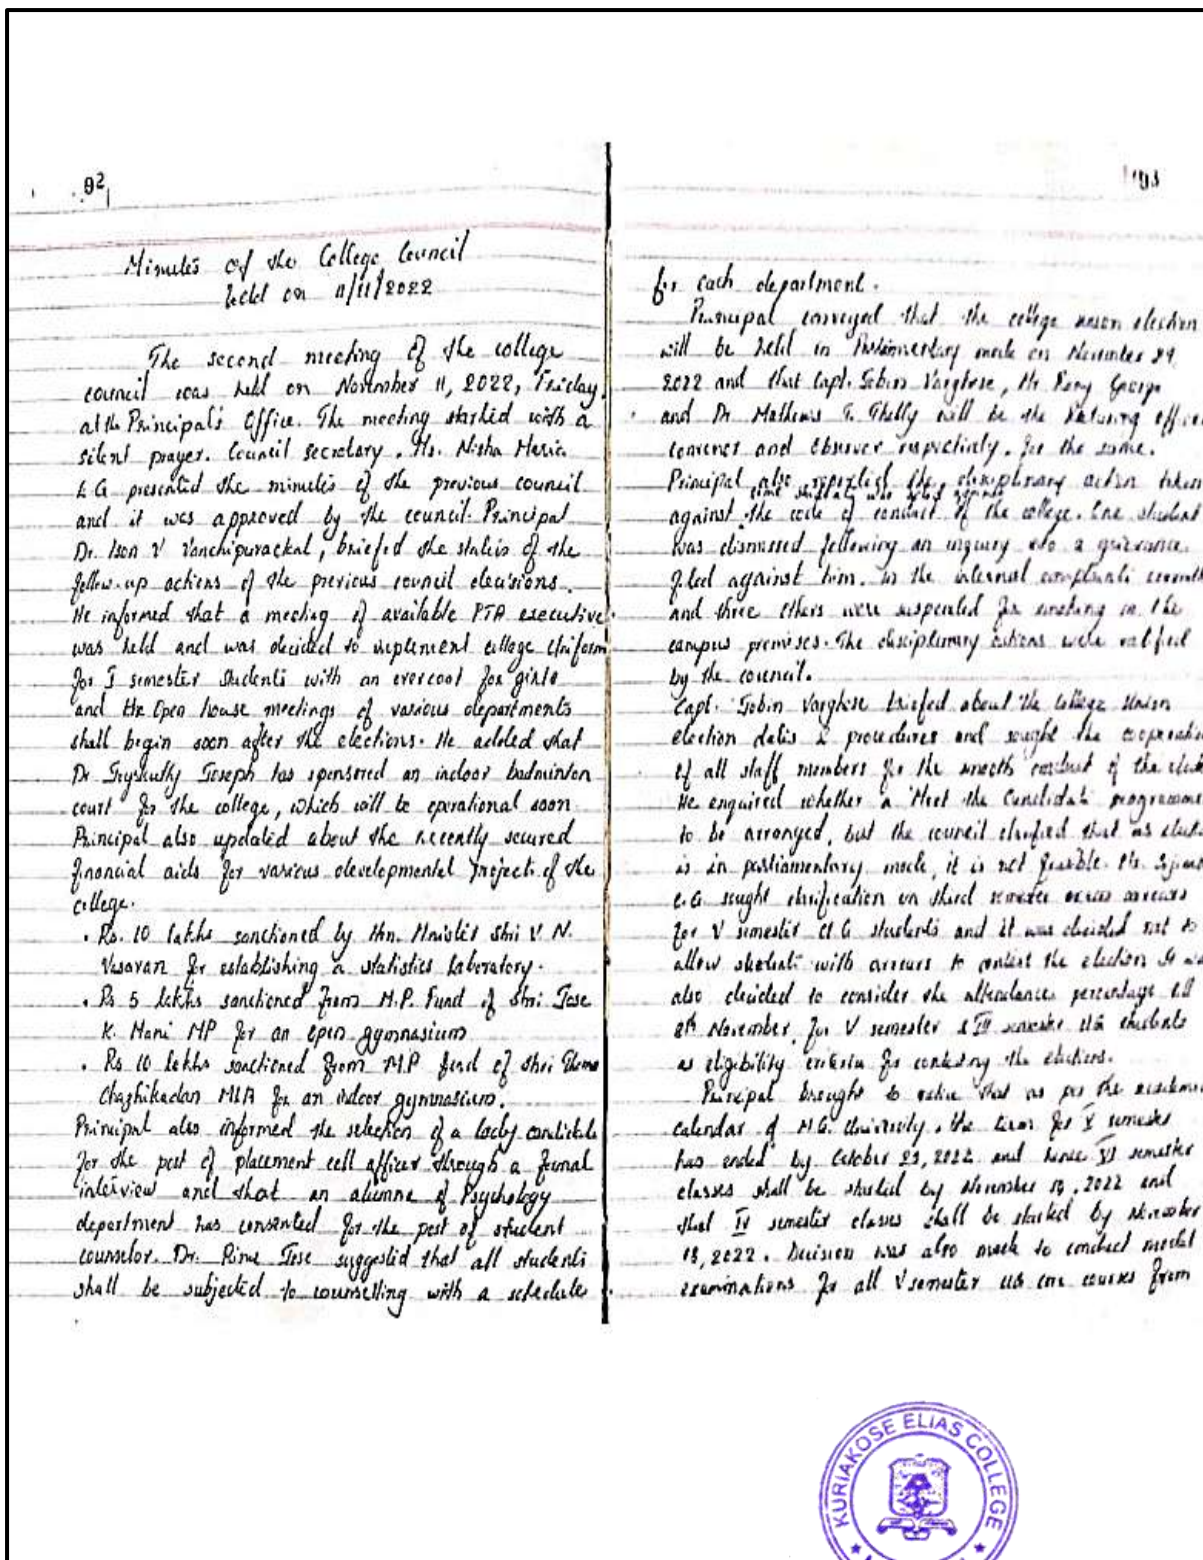 92
Minutes of the College Council
held on 11/11/2022
The second meeting of the college
council was held on November 11, 2022, Friday
at the Principal's Office. The meeting started with a
silent prayer. Council secretary, Ms. Nisha Maria
presented the minutes of the previous council
and it was approved by the council. Principal
Dr. Ison V Vanchipurackal, briefed the status of the
follow-up actions of the previous council decisions.
He informed that a meeting of available PTA executive
was held and was decided to implement college Uniform
for I semester students with an overcoat for girls
and the Open house meetings of various departments
shall begin soon after the elections. He added that
Dr. Joseph has sponsored an indoor badminton
court for the college, which will be operational soon
Principal also updated about the recently secured
financial aids for various developmental projects of the
college.
. Rs. 10 lakhs sanctioned by Hon. Minister Shri V. N.
Vasavan for establishing a statistics laboratory.
. Rs 5 lakhs sanctioned from M.P. Fund of Shri Jose
K. Mani MP for an open gymnasium
. Rs 10 lakhs sanctioned from M.P fund of Shri
Chazhikadan MLA for an indoor gymnasium.
Principal also informed the selection of a candidate
for the post of placement cell officer through a formal
interview and that an alumna of Psychology
department has consented for the post of student
counselor. Dr. Jose suggested that all students
shall be subjected to counselling with a schedule
193
for each department.
Principal conveyed that the college union election
will be held in Parliamentary mode on November 24
2022 and that Capt. Jobin Varghese, Mr. George
and Dr. Mathews T. Thelly will be the Returning
convener and Observer respectively, for the same.
Principal also reported the disciplinary action taken
some students who acted against
against the code of conduct of the college. One student
was dismissed following an inquiry into a grievance
filed against him, in the internal complaints
and three others were suspended for smoking in the
campus premises. The disciplinary actions were ratified
by the council.
Capt. Jobin Varghese briefed about the College Union
election dates & procedures and sought the
of all staff members for the smooth conduct of the
He enquired whether a 'Meet the Candidate programme
to be arranged, but the council clarified that as
is in parliamentary mode, it is not feasible.
sought clarification on third semester arrears
for V semester UG students and it was decided not to
allow students with arrears to contest the election
also decided to consider the attendance percentage till
8th November, for V semester & III semester UG students
as eligibility criteria for contesting the elections.
Principal brought to notice that as per the academic
calendar of M.G. University, the term for V semester
has ended by October 29, 2022 and hence VI semester
classes shall be started by November, 2022 and
that IV semester classes shall be started by November
2022. Decision was also made to conduct model
examinations for all V semester UG core courses from
KURIAKOSE ELIAS COLLEGE